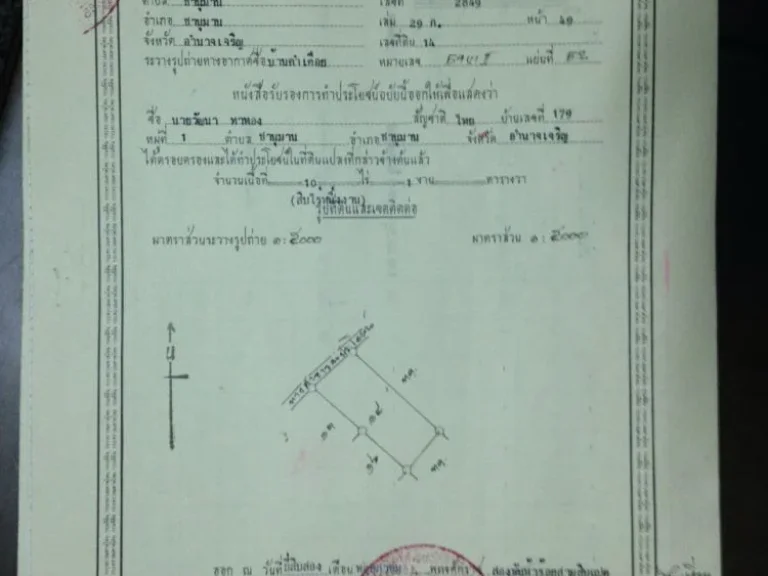 ตำบล ชานุมาน เลขที่ 2849
อำเภอ ชานุมาน เล่ม 29 ก. หน้า 49
จังหวัด อำนาจเจริญ เลขที่ดิน 14
ระวางรูปถ่ายทางอากาศชื่อ บ้านคำเดือย หมายเลข แผ่นที่ ๕๘
หนังสือรับรองการทำประโยชน์ฉบับนี้ออกให้เพื่อแสดงว่า
ชื่อ นายวัฒนา ทาทอง สัญชาติ ไทย บ้านเลขที่ 179
หมู่ที่ 1 ตำบล ชานุมาน อำเภอ ชานุมาน จังหวัด อำนาจเจริญ
ได้ครอบครองและได้ทำประโยชน์ในที่ดินแปลงที่กล่าวข้างต้นแล้ว
จำนวนเนื้อที่ 10 ไร่ 1 งาน ตารางวา
(สิบไร่หนึ่งงาน)
รูปที่ดินและเขตติดต่อ
มาตราส่วนระวางรูปถ่าย ๑ : ๕๐๐๐ มาตราส่วน ๑ : ๕๐๐๐
น
ทางสาธารณะประโยชน์
ทค.
๑๓ ๑๔
๑๒ ทค.
ออก ณ วันที่ ยี่สิบสอง เดือน พฤษภาคม พุทธศักราช